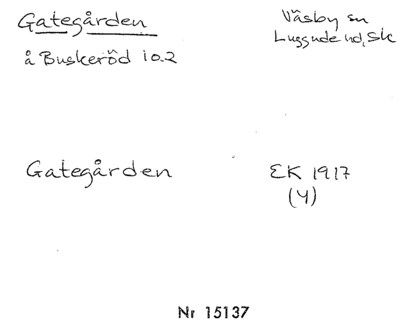 Gategården
Väsby sn
Luggude hd, Sk
å Buskeröd 10.2
Gategården
EK 1917
(4)
Nr 15137